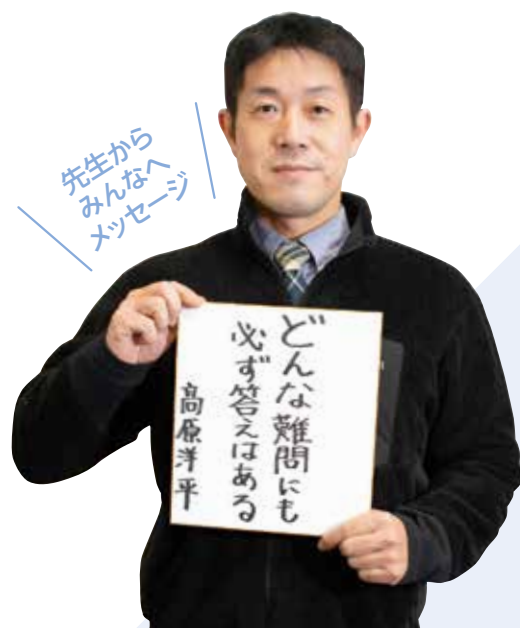 先生から
みんなへ
メッセージ
どんな難問にも
必ず答えはある
高原洋平